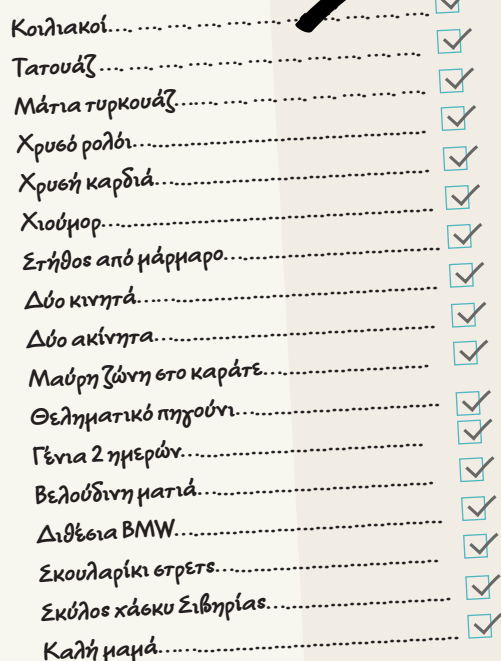 Κοιλιακοί
Τατουάζ
Μάτια τυρκουάζ
Χρυσό ρολόι
Χρυσή καρδιά
Χιούμορ
Στήθος από μάρμαρο
Δύο κινητά
Δύο ακίνητα
Μαύρη ζώνη στο καράτε
Θεληματικό πηγούνι
Γένια 2 ημερών
Βελούδινη ματιά
Διθέσια BMW
Σκουλαρίκι στρετς
Σκύλος χάσκυ Σιβηρίας
Καλή μαμά